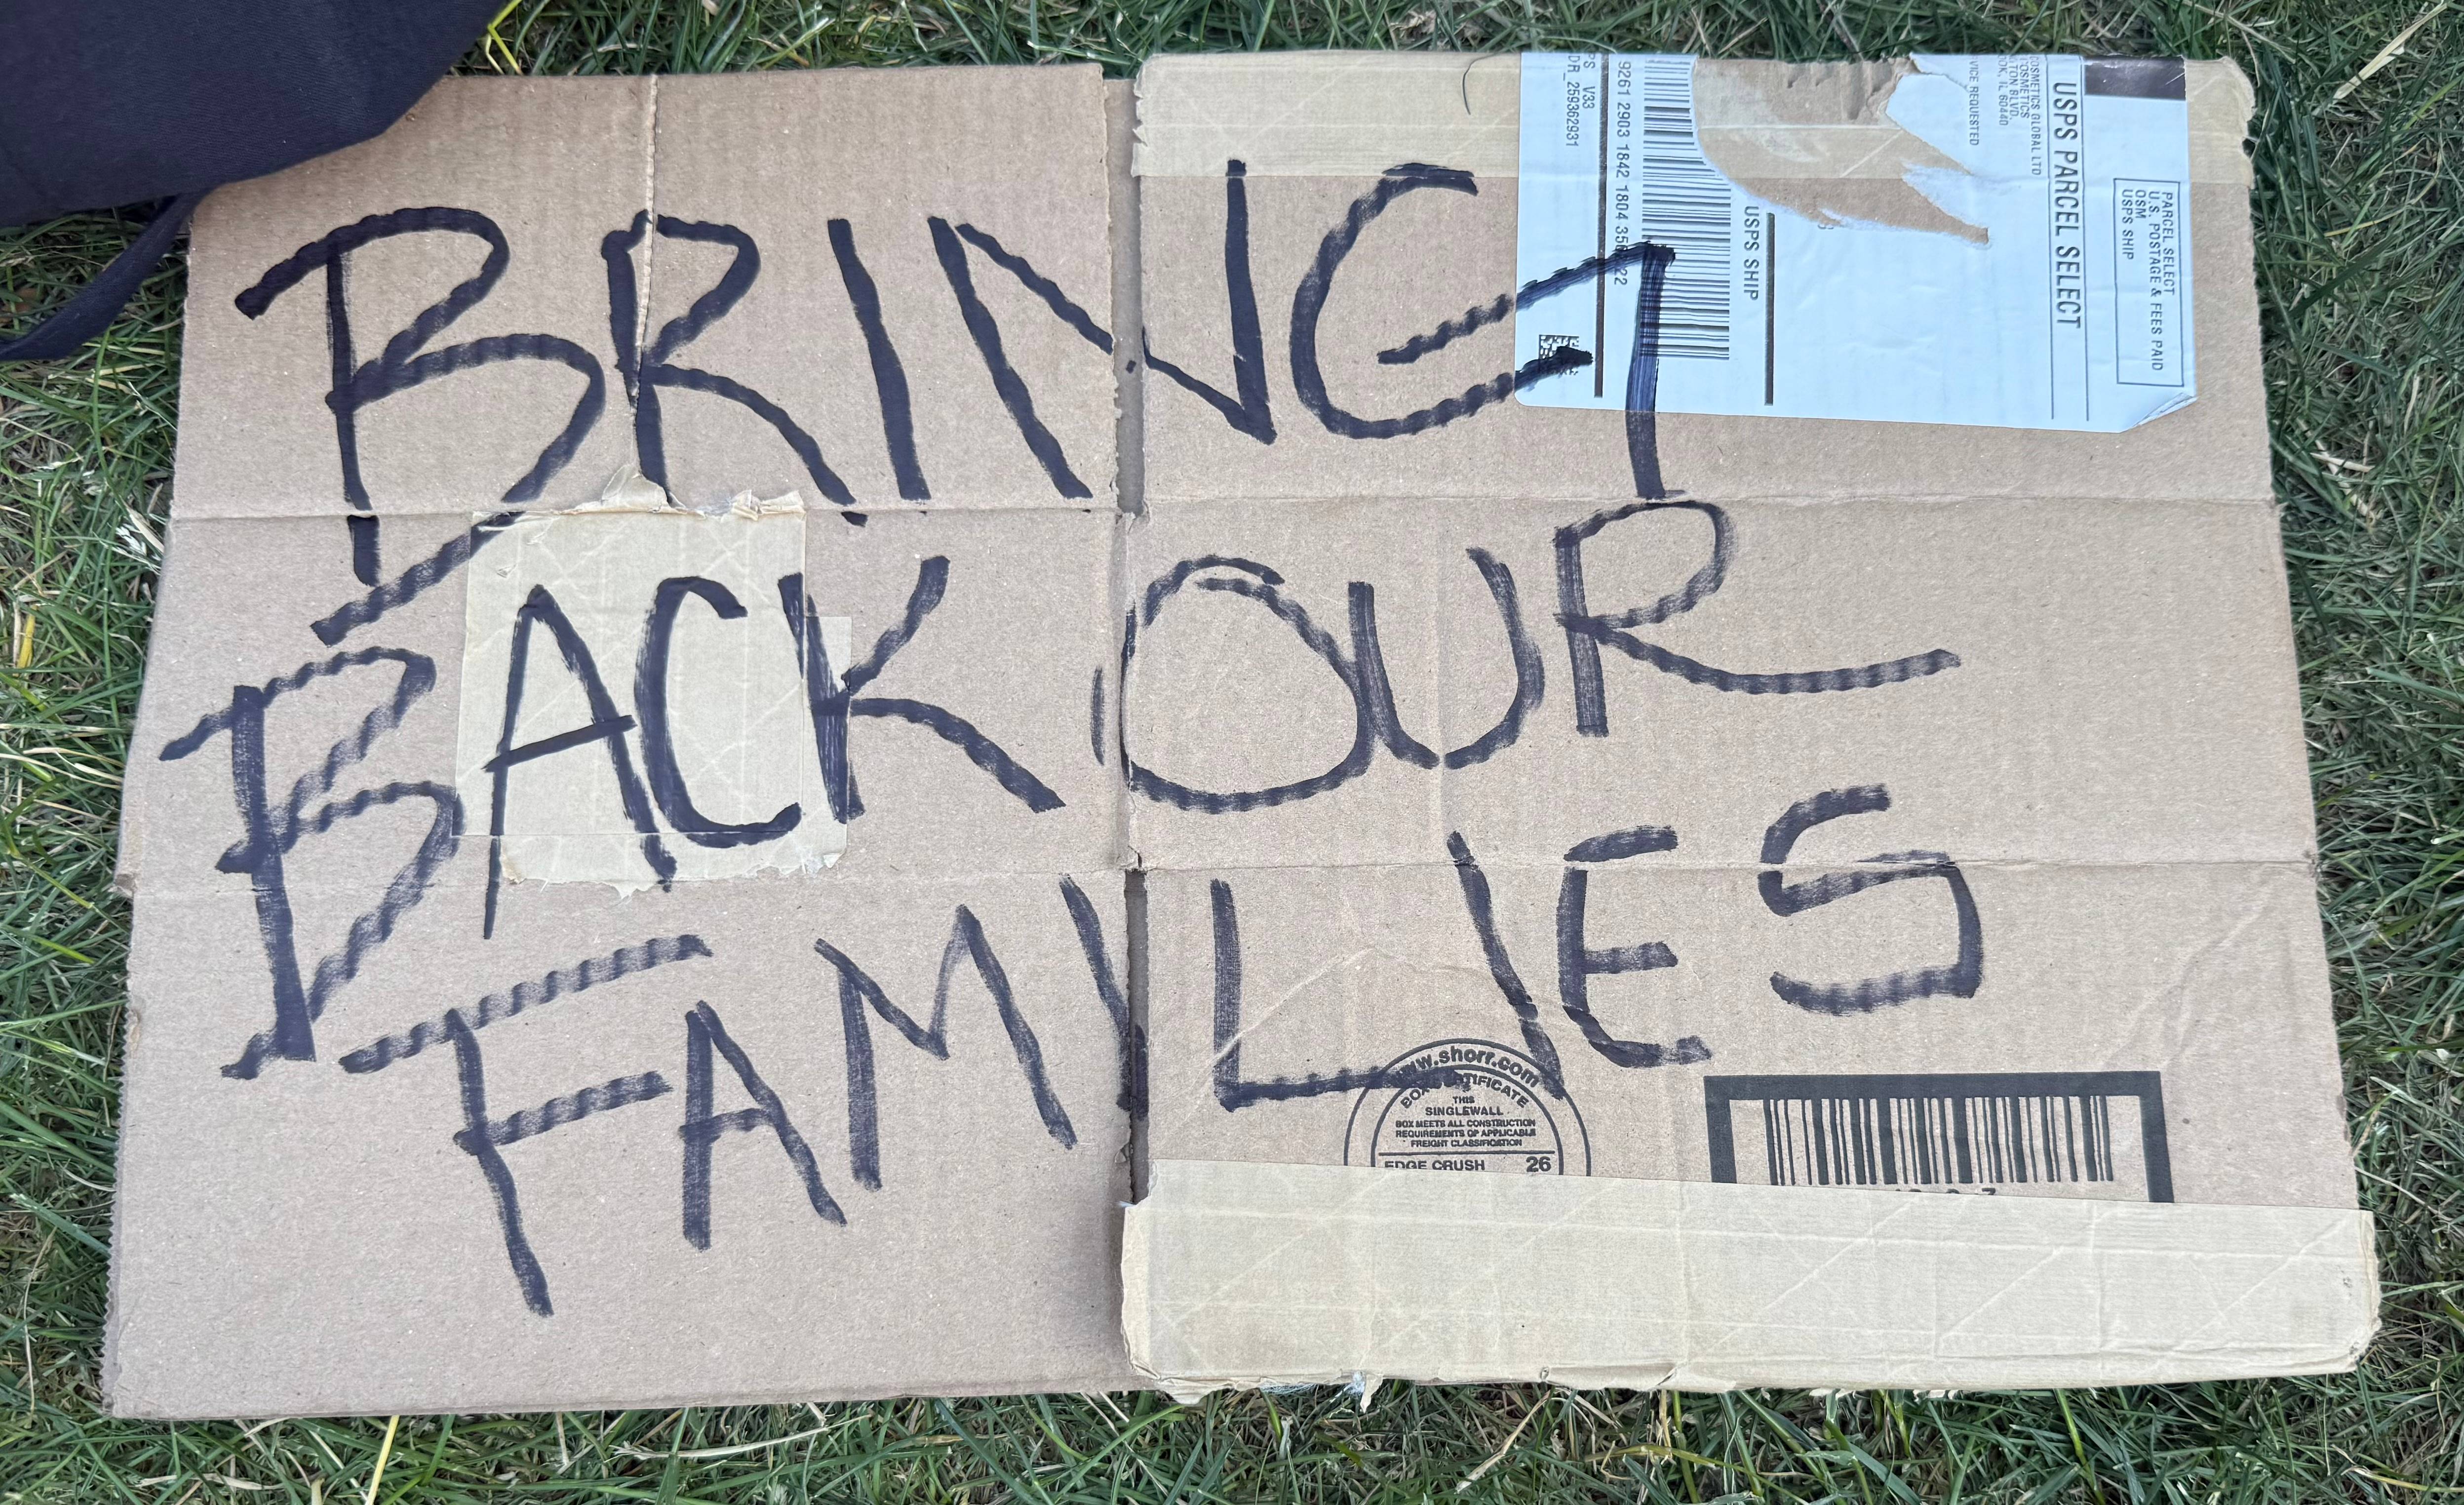 BRING
BACK OUR
FAMILIES
USPS PARCEL SELECT
PARCEL SELECT
U.S. POSTAGE & FEES PAID
OSM
USPS SHIP
COSMETICS GLOBAL LTD
COSMETICS
TON BLVD.
IL 60440
VICE REQUESTED
USPS SHIP
9261 2903 1842 1804 35 22
V33
DR_259362931
www.shorr.com
BOX CERTIFICATE
THIS
SINGLEWALL
BOX MEETS ALL CONSTRUCTION
REQUIREMENTS OF APPLICABLE
FREIGHT CLASSIFICATION
EDGE CRUSH 26